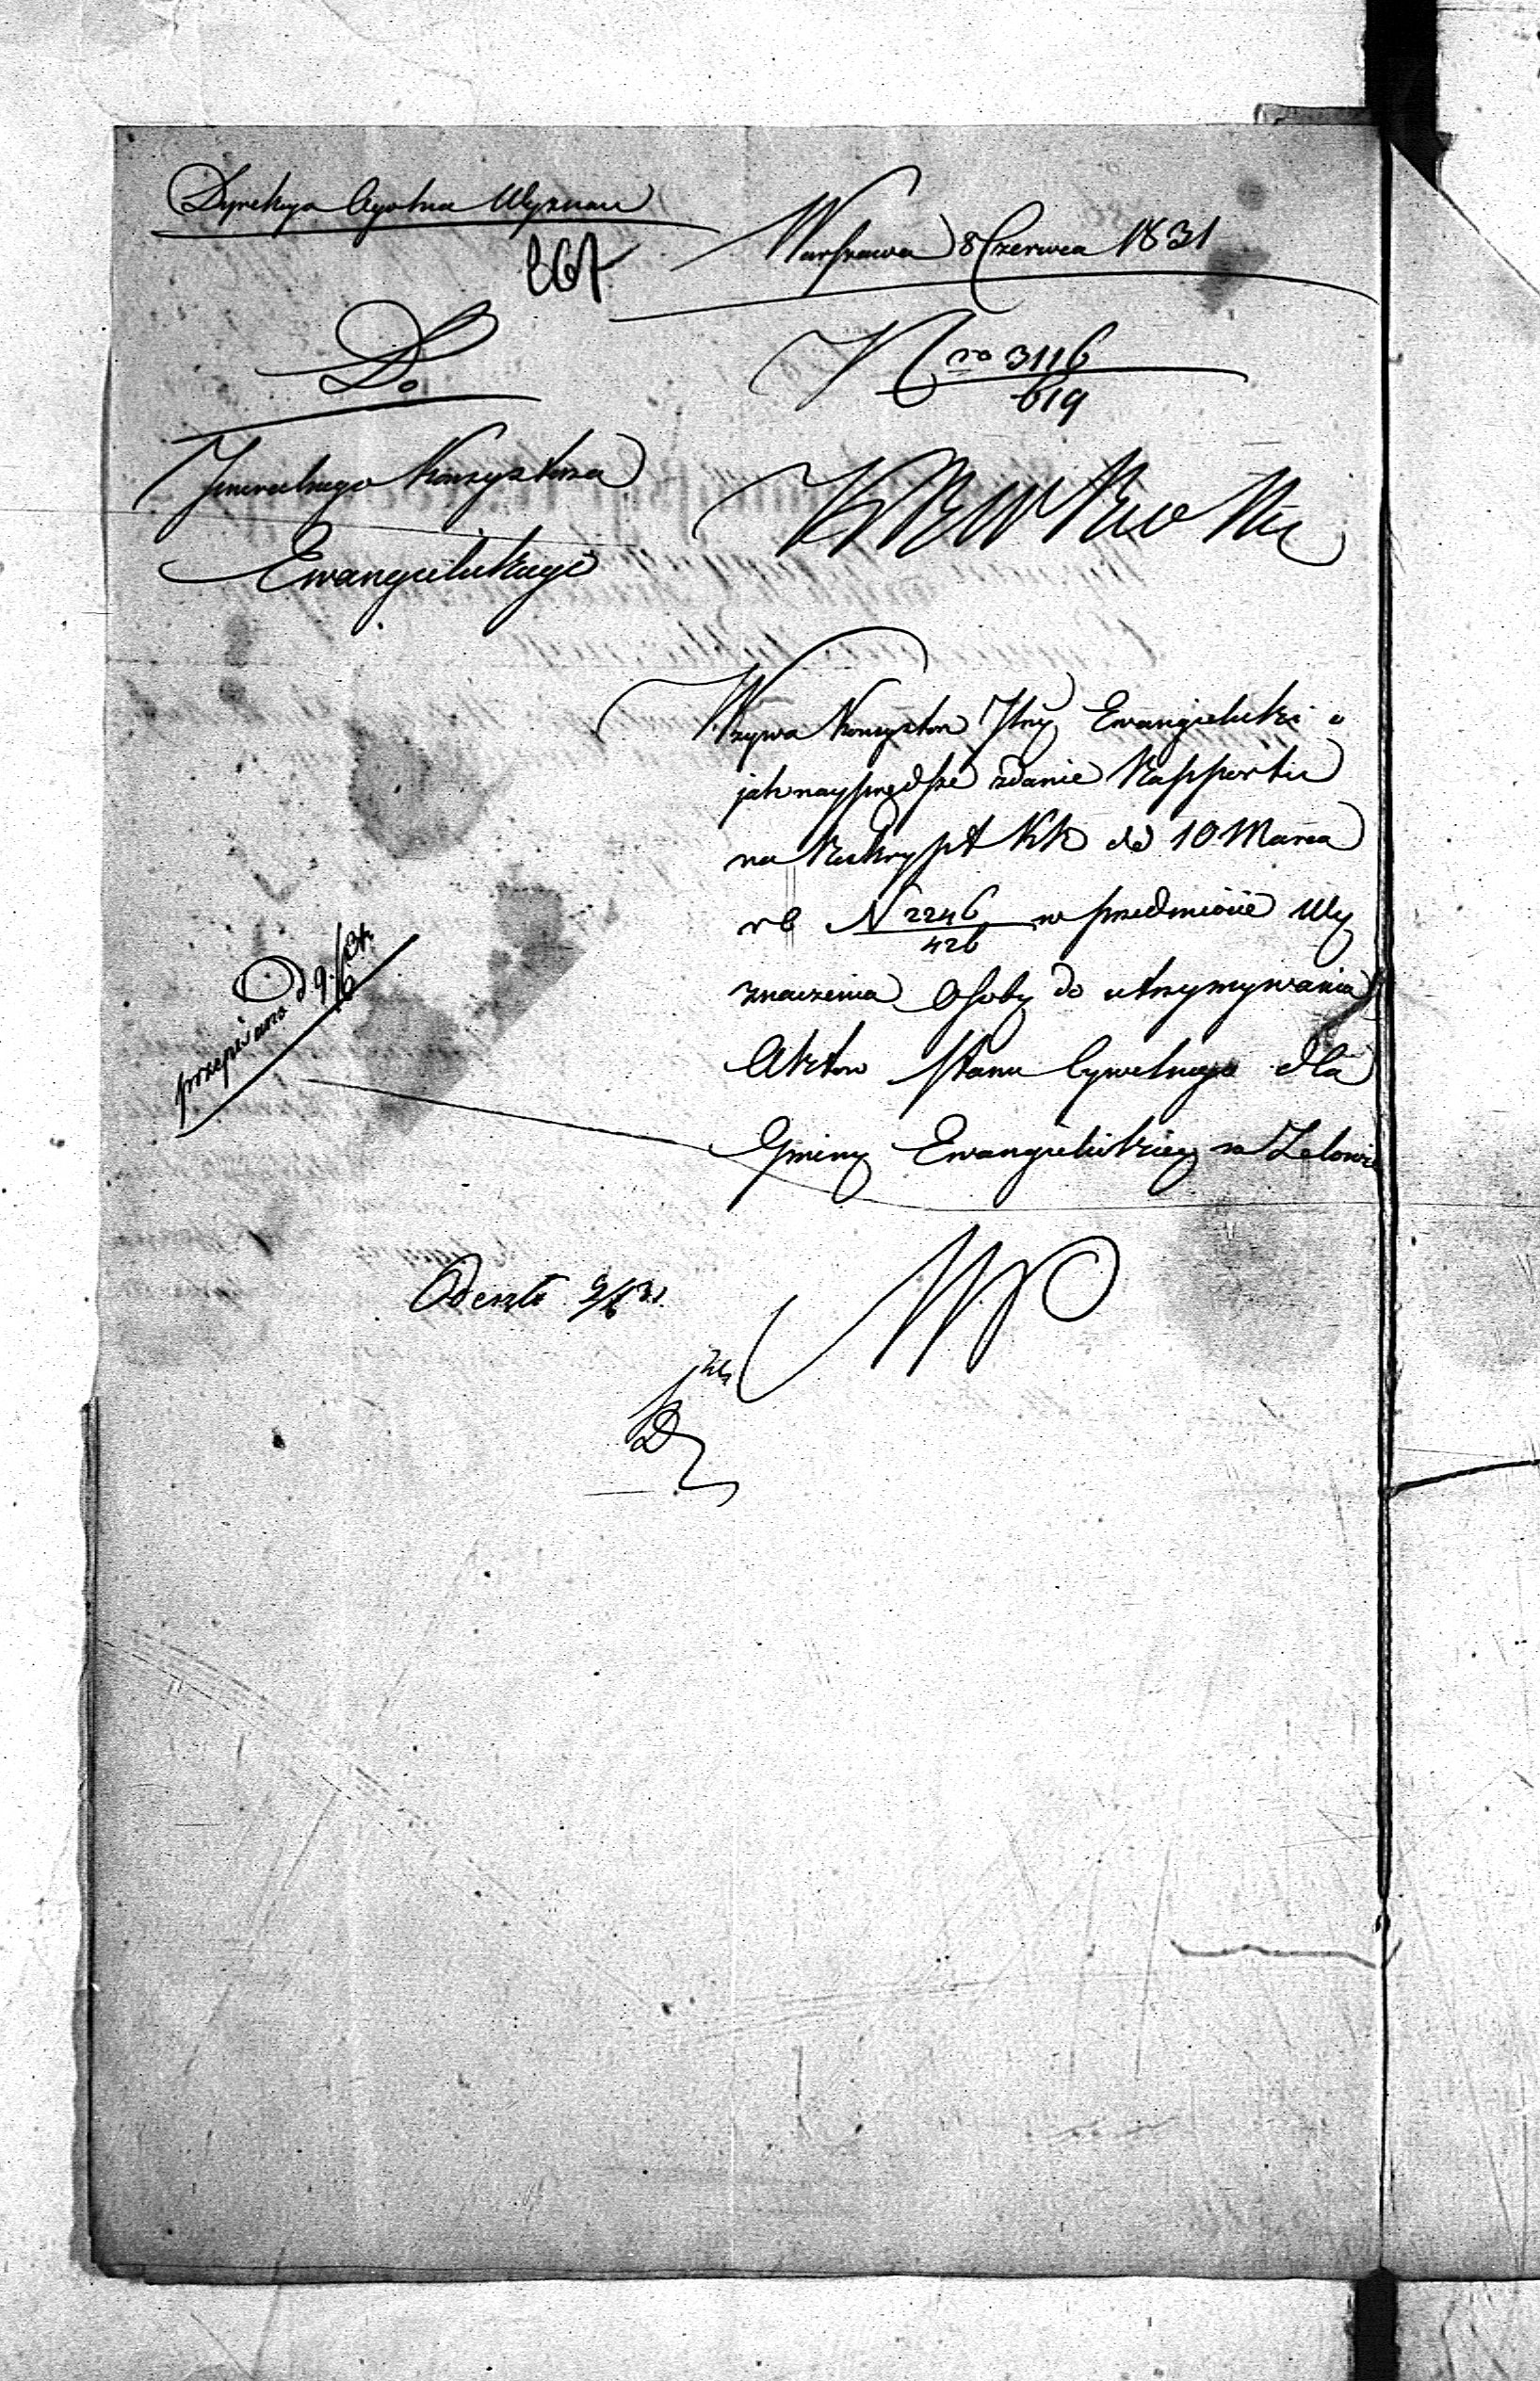 Dyrekcya Ogolna Wyznan
Warszawa 8 Czerwca 1831
867
Do
Nro 3116
619
Jeneralnego Konsystorza
Ewangielickiego
Wzywa Konsystorz Jlny Ewangielicki o
jak nayprędsze zdanie Rapportu
na Reskrypt KR de 10 Marca
rb N 2246 w przedmiocie Wy
426
znaczenia Osoby do utrzymywania
Aktow Stanu Cywilnego dla
Gminy Ewangielickiey w Zelowie
przepisano Od 9/6 31.
Odeszło 9/6 31.